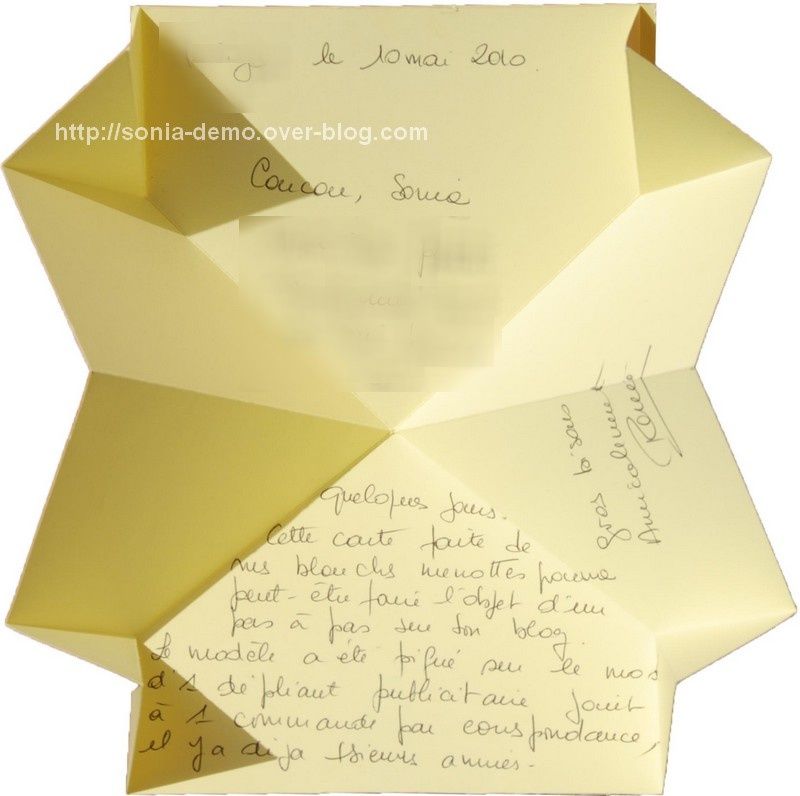 le 10 mai 2010.
http://sonia-demo.over-blog.com
Coucou, Sonia
quelques jours.
Cette carte faite de
mes blanches menottes pourra
peut-être faire l'objet d'un
pas à pas sur ton blog.
Le modèle a été piqué sur le
d'1 dépliant publicitaire joint
à 1 commande par correspondance,
il y a déjà 
années.
gros bisous
Amicalement